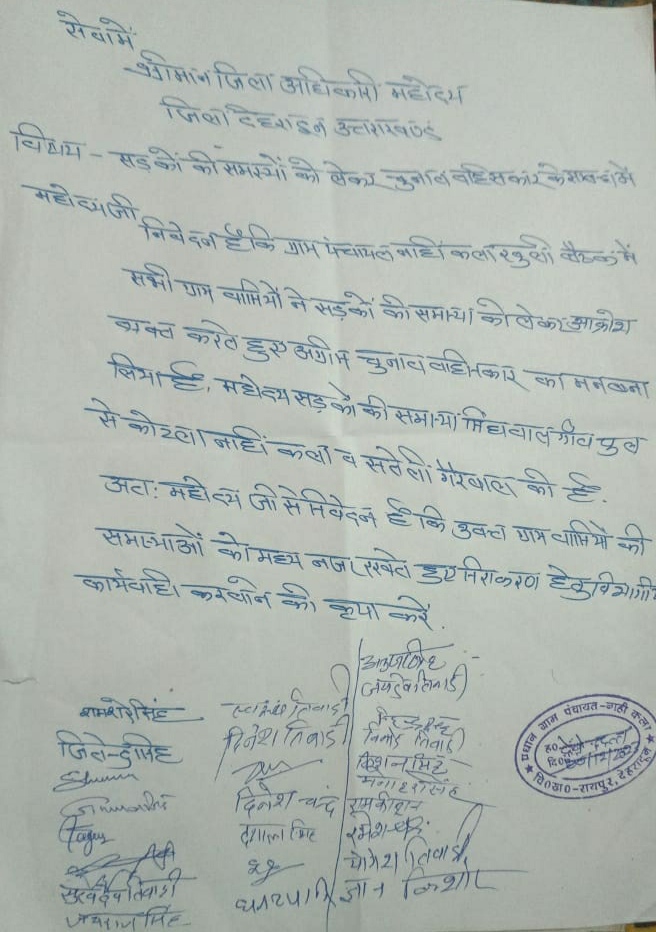 सेवामें
श्रीमान जिला अधिकारी महोदय
जिला देहरादून उत्तराखण्ड
विषय - सड़कों की समस्यों को लेकर चुनाव वहिसकार के सम्बन्ध में
महोदय जी
निवेदन है कि ग्राम पंचायत नाहीं कला खुली बैठक में
सभी ग्राम वासियों ने सड़कों की समस्या को लेकर आक्रोश
व्यक्त करते हुए अग्रिम चुनाव वहिस्कार का मन बना
लिया है, महोदय सड़कों की समस्या सिंधवाल गाँव पुल
से कोटला नाहीं कला व सतेली गैरवाल की है.
अतः महोदय जी से निवेदन है कि उक्त ग्राम वासियों की
समस्याओं को मध्य नजर रखते हुए निराकरण हेतु विभागीय
कार्यवाही करवाने की कृपा करें.
जयदेव तिवाड़ी
शमशेर सिंह
दिनेश तिवाड़ी
विनोद तिवाड़ी
जितेन्द्र सिंह
किशन सिंह
दिनेश चन्द
रामकिशन
रमेश चंद
योगेश तिवाड़ी
सुखदेव तिवाड़ी
प्रधान ग्राम पंचायत-नाही कला
वि०ख०-रायपुर, देहरादून